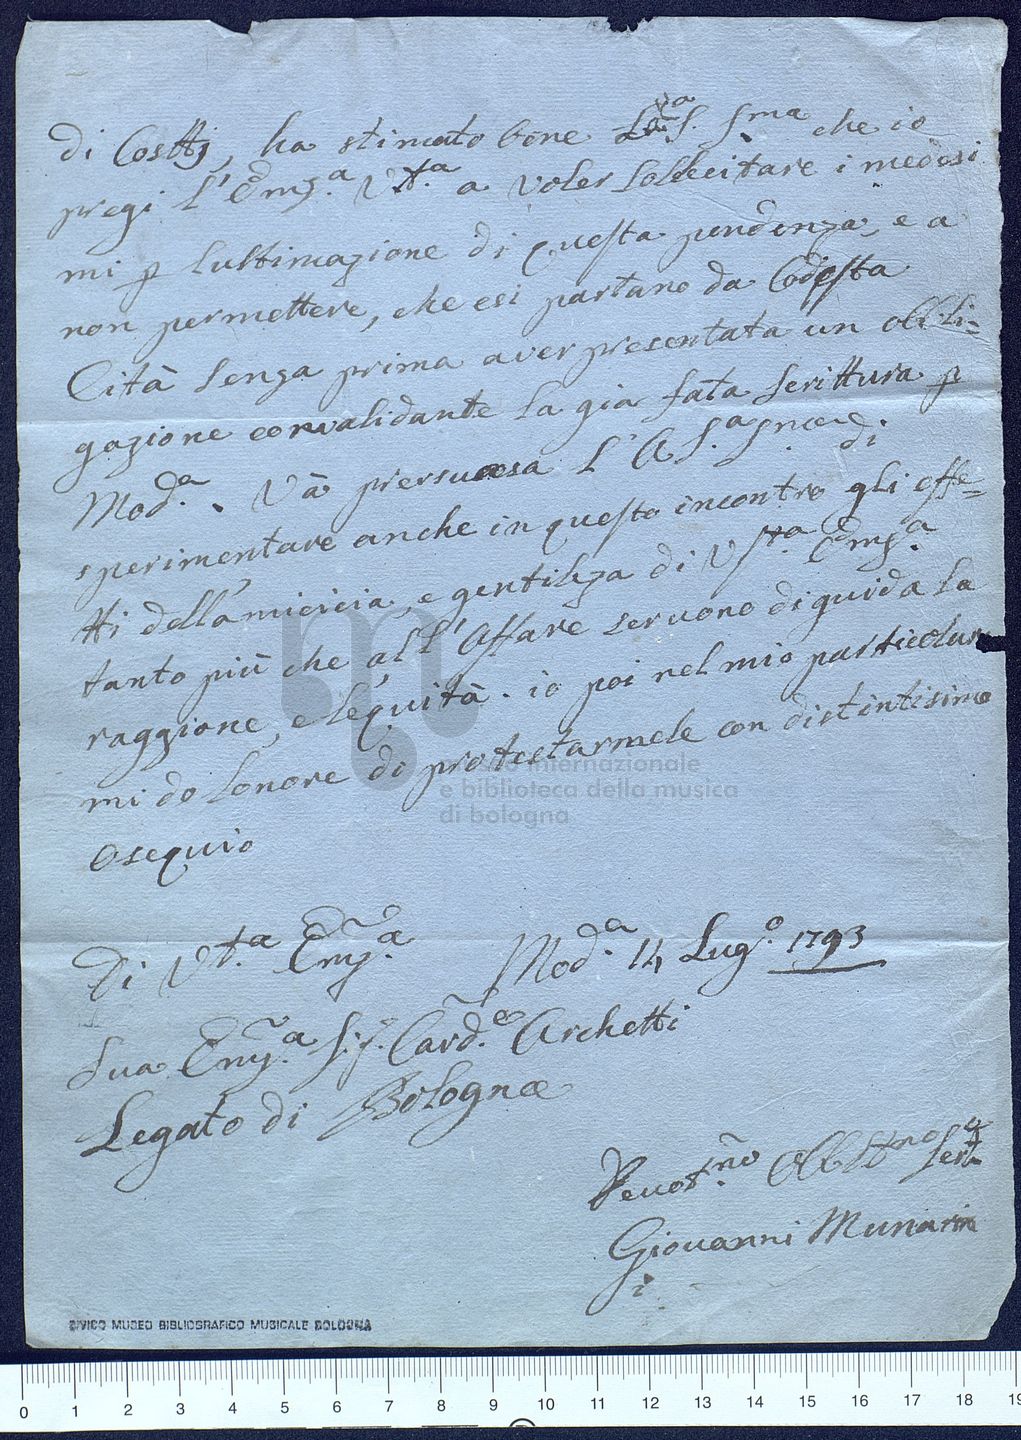 di Costtj, ha stimato bene L'A.S. Sma che io
pregi l'Emza Vta a voler sollecitare i medesi
mi p lultimazione di questa pendenza, e a
non permettere, che esi partano da Codesta
Cità senza prima aver presentata un obbli=
gazione corvalidante la già fata scrittura p
Moda. Và presuasa l'A.S.a Sma di
sperimentare anche in questo incontro gli effe=
tti dell'amicicia, e gentileza di Vsta Emza
tanto più che all'Affare servono di guida la
raggione, e lequità. io poi nel mio particolare
mi do lonore di protestarmele con distintisimo
osequio
Di Vta Emza
Moda 14 Lugo 1793
Sua Emza S:r Carde Archetti
Legato di Bologna
Devotmo Obblgmo Serv
Giovanni Munarin
i
museo internazionale
e biblioteca della musica
di bologna
CIVICO MUSEO BIBLIOGRAFICO MUSICALE BOLOGNA
0 1 2 3 4 5 6 7 8 9 10 11 12 13 14 15 16 17 18 19